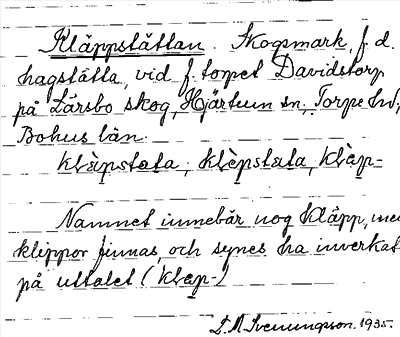 Kläppstättan. Skogsmark, f.d.
hagstätta, vid f. torpet Davidstorp
på Lärsbo skog, Hjärtum sn, Torpe hd,
Bohus län.
klæ̀pstata, klèpstata, klæp-
Namnet innebär nog kläpp, men
klippor finnas, och synes ha inverkat
på uttalet (klæp-)
D. A. Svenungsson. 1935.